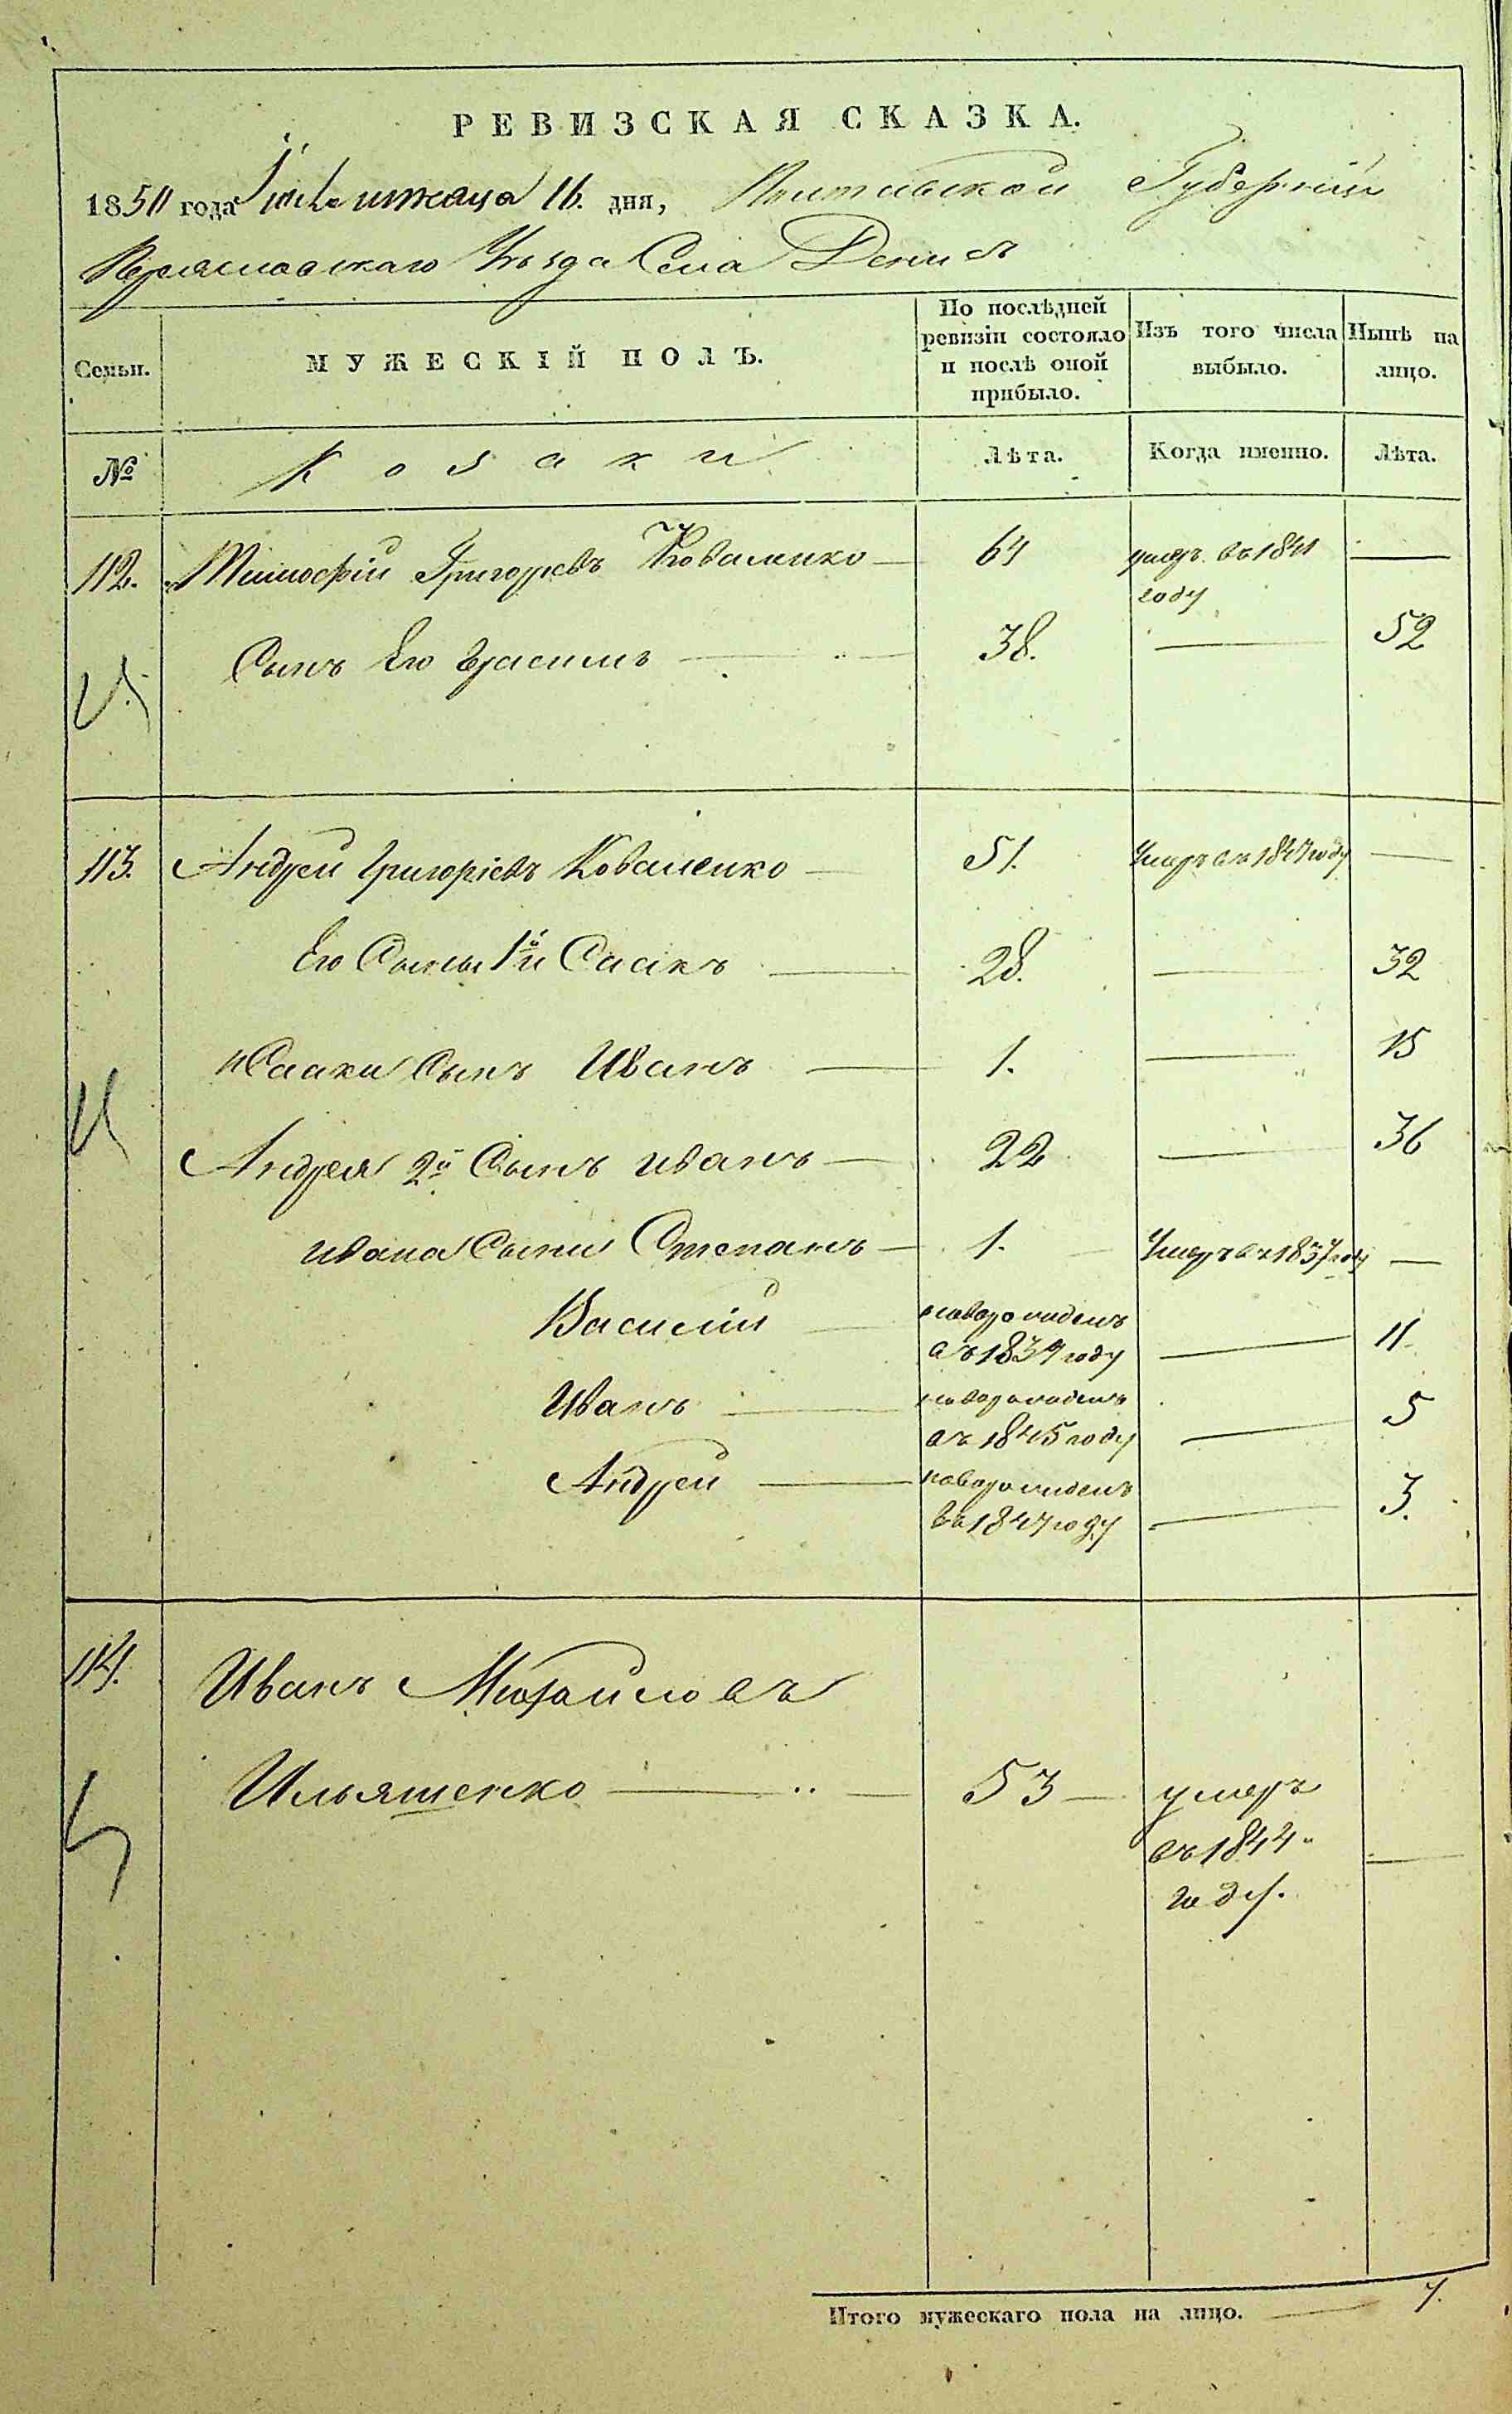 РЕВИЗСКАЯ СКАЗКА.
1850 года месяца 16. дня, Полтавской Губерніи
Переяславскаго Уѣзда Села Денис
Семьи. МУЖЕСКІЙ ПОЛЪ. По послѣдней ревизіи состояло и послѣ оной прибыло. Изъ того числа выбыло. Нынѣ на лицо.
№ Козаки Лѣта. Когда именно. Лѣта.
112. Тимофій Григорьевъ Коваленко — 64 умеръ въ 1841 году —
Сынъ Его Герасимъ — 38. — 52
113. Андрей Григоріевъ Коваленко — 51. Умеръ въ 1847 году —
Его Сыны 1й Исаакъ — 28. — 32
Исаака Сынъ Иванъ — 1. — 15
Андрея 2й Сынъ Иванъ — 22 — 36
Ивана Сыны Степанъ — 1. — Умеръ въ 1837 году —
Василій — новорожденъ въ 1839 году — 11
Иванъ — новорожденъ въ 1845 году — 5
Андрей — новорожденъ въ 1847 году — 3.
114. Иванъ Михайловъ
Ильяшенко — 53 — умеръ
въ 1844 —
году.
Итого мужескаго пола на лицо. — 7.